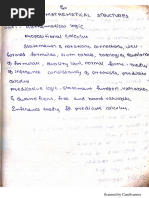 MATHEMATICAL STRUCTURES
Mathematical logic
Propositional calculus
Statements & notations, connectives, well
formed formulas, truth tables, tautology
of formulas, duality law, normal forms, theory
of inference, consistency of
predicative logic, statement function, variables
& quantifiers, free and bound variables
Inference theory for predicate calculus.
Scanned by CamScanner